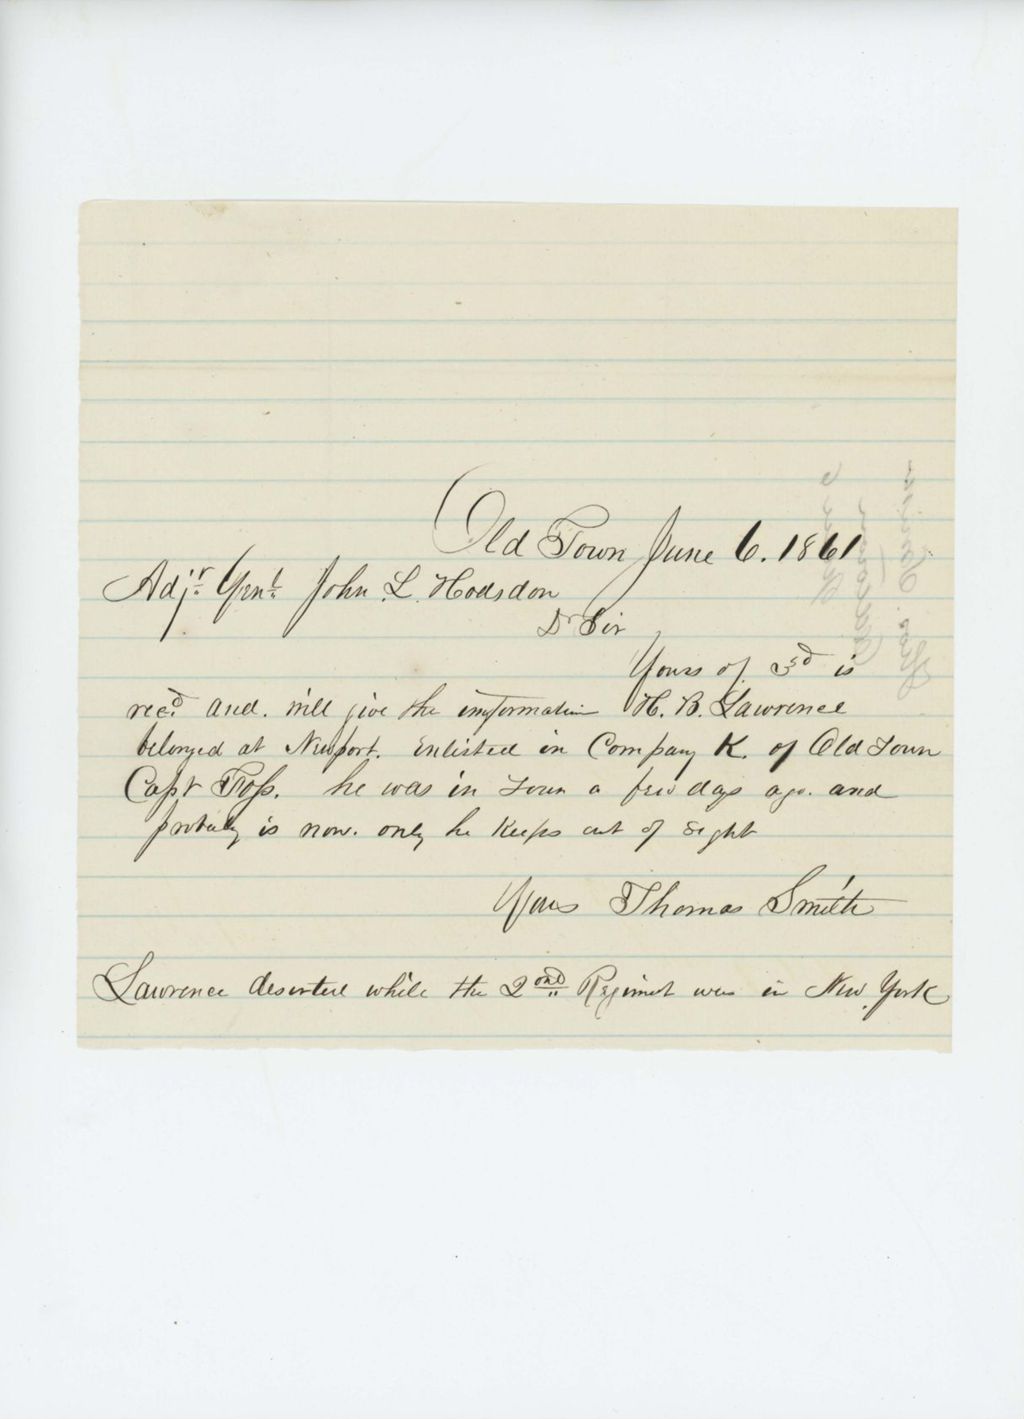 Old Town June 6. 1861
Adjr. Genl. John L. Hodsdon
Dr Sir
Yours of 3d is
recd. and. will give the imformation H. B. Lawrence
belonged at Newport. Enlisted in Company K. of Old Town
Capt Foss. he was in Town a few days ago. and
probably is now. only he keeps out of sight
Yours Thomas Smith
Lawrence deserted while the 2ond Regiment was in New York